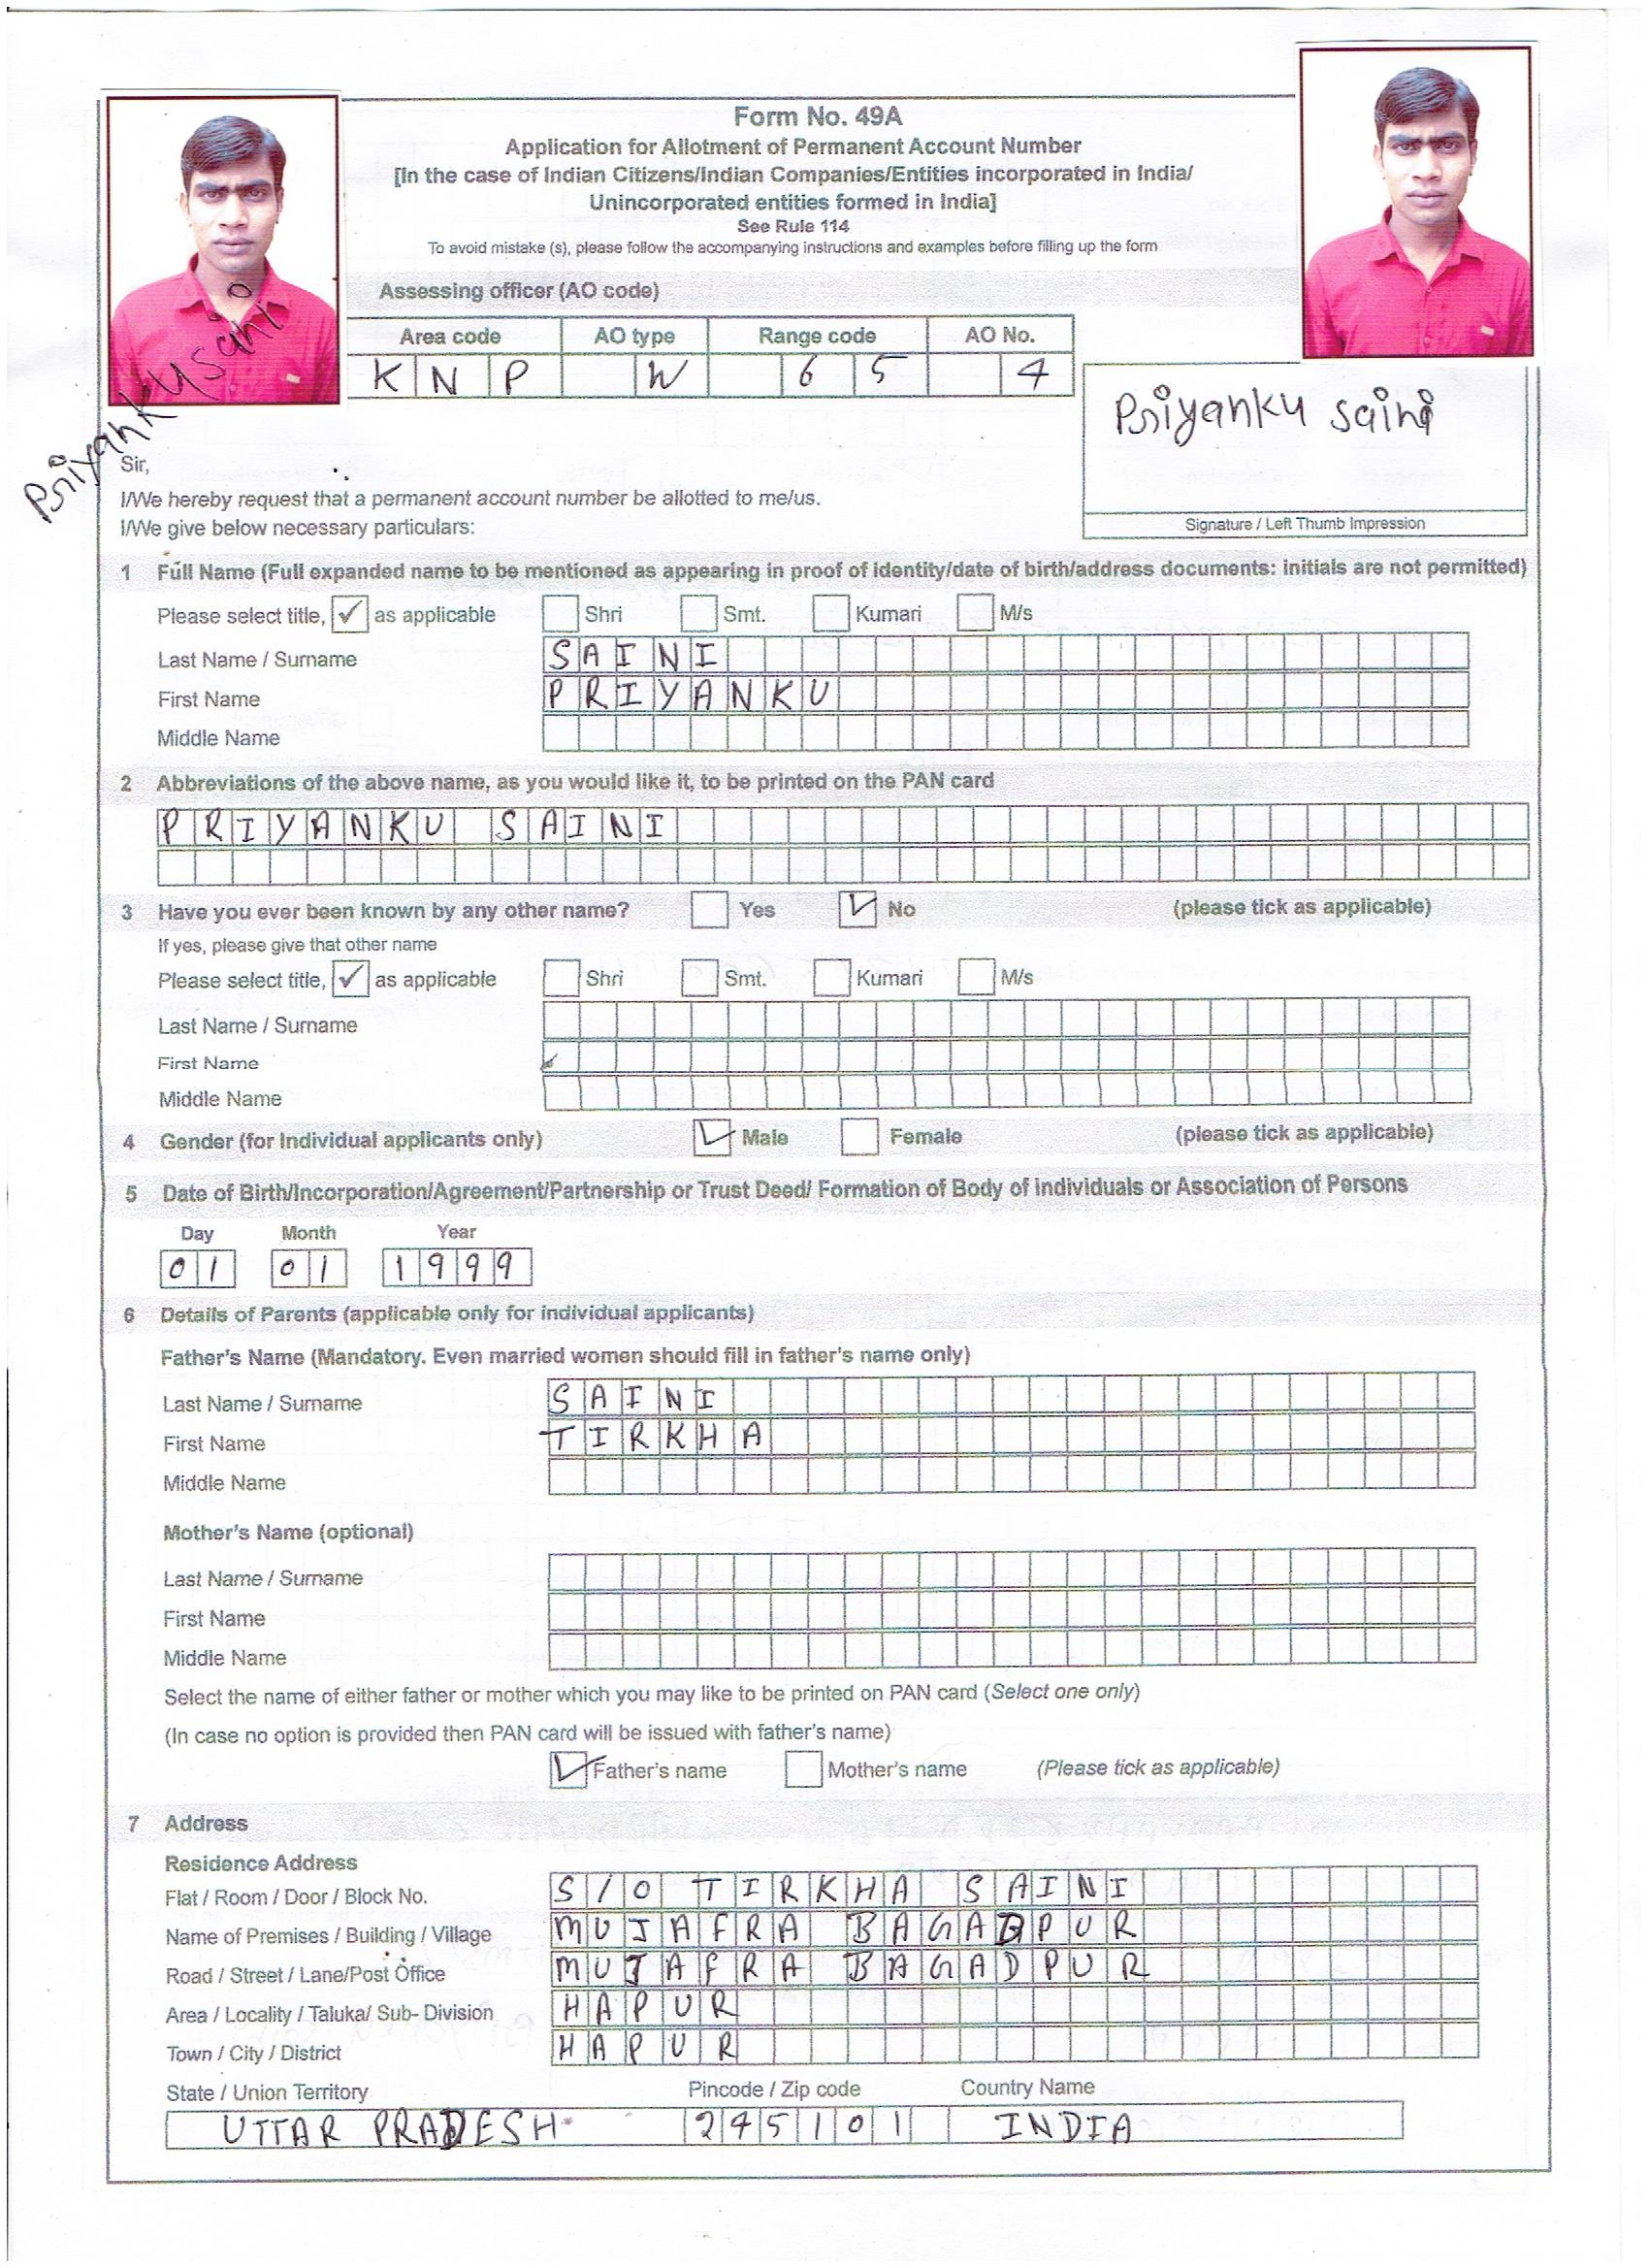 Form No. 49A
Application for Allotment of Permanent Account Number
[In the case of Indian Citizens/Indian Companies/Entities incorporated in India/
Unincorporated entities formed in India]
See Rule 114
To avoid mistake (s), please follow the accompanying instructions and examples before filling up the form
Assessing officer (AO code)
Area code AO type Range code AO No.
KNP W 65 4
Priyanku saini
Priyanku saini
Signature / Left Thumb Impression
Sir,
I/We hereby request that a permanent account number be allotted to me/us.
I/We give below necessary particulars:
1 Full Name (Full expanded name to be mentioned as appearing in proof of identity/date of birth/address documents: initials are not permitted)
Please select title, ✓ as applicable Shri Smt. Kumari M/s
Last Name / Surname SAINI
First Name PRIYANKU
Middle Name
2 Abbreviations of the above name, as you would like it, to be printed on the PAN card
PRIYANKU SAINI
3 Have you ever been known by any other name? Yes ✓ No (please tick as applicable)
If yes, please give that other name
Please select title, ✓ as applicable Shri Smt. Kumari M/s
Last Name / Surname
First Name
Middle Name
4 Gender (for Individual applicants only) ✓ Male Female (please tick as applicable)
5 Date of Birth/Incorporation/Agreement/Partnership or Trust Deed/ Formation of Body of individuals or Association of Persons
Day Month Year
01 01 1999
6 Details of Parents (applicable only for individual applicants)
Father's Name (Mandatory. Even married women should fill in father's name only)
Last Name / Surname SAINI
First Name TIRKHA
Middle Name
Mother's Name (optional)
Last Name / Surname
First Name
Middle Name
Select the name of either father or mother which you may like to be printed on PAN card (Select one only)
(In case no option is provided then PAN card will be issued with father's name)
✓ Father's name Mother's name (Please tick as applicable)
7 Address
Residence Address
Flat / Room / Door / Block No. S/O TIRKHA SAINI
Name of Premises / Building / Village MUJAFRA BAGADPUR
Road / Street / Lane/Post Office MUJAFRA BAGADPUR
Area / Locality / Taluka/ Sub- Division HAPUR
Town / City / District HAPUR
State / Union Territory Pincode / Zip code Country Name
UTTAR PRADESH 245101 INDIA